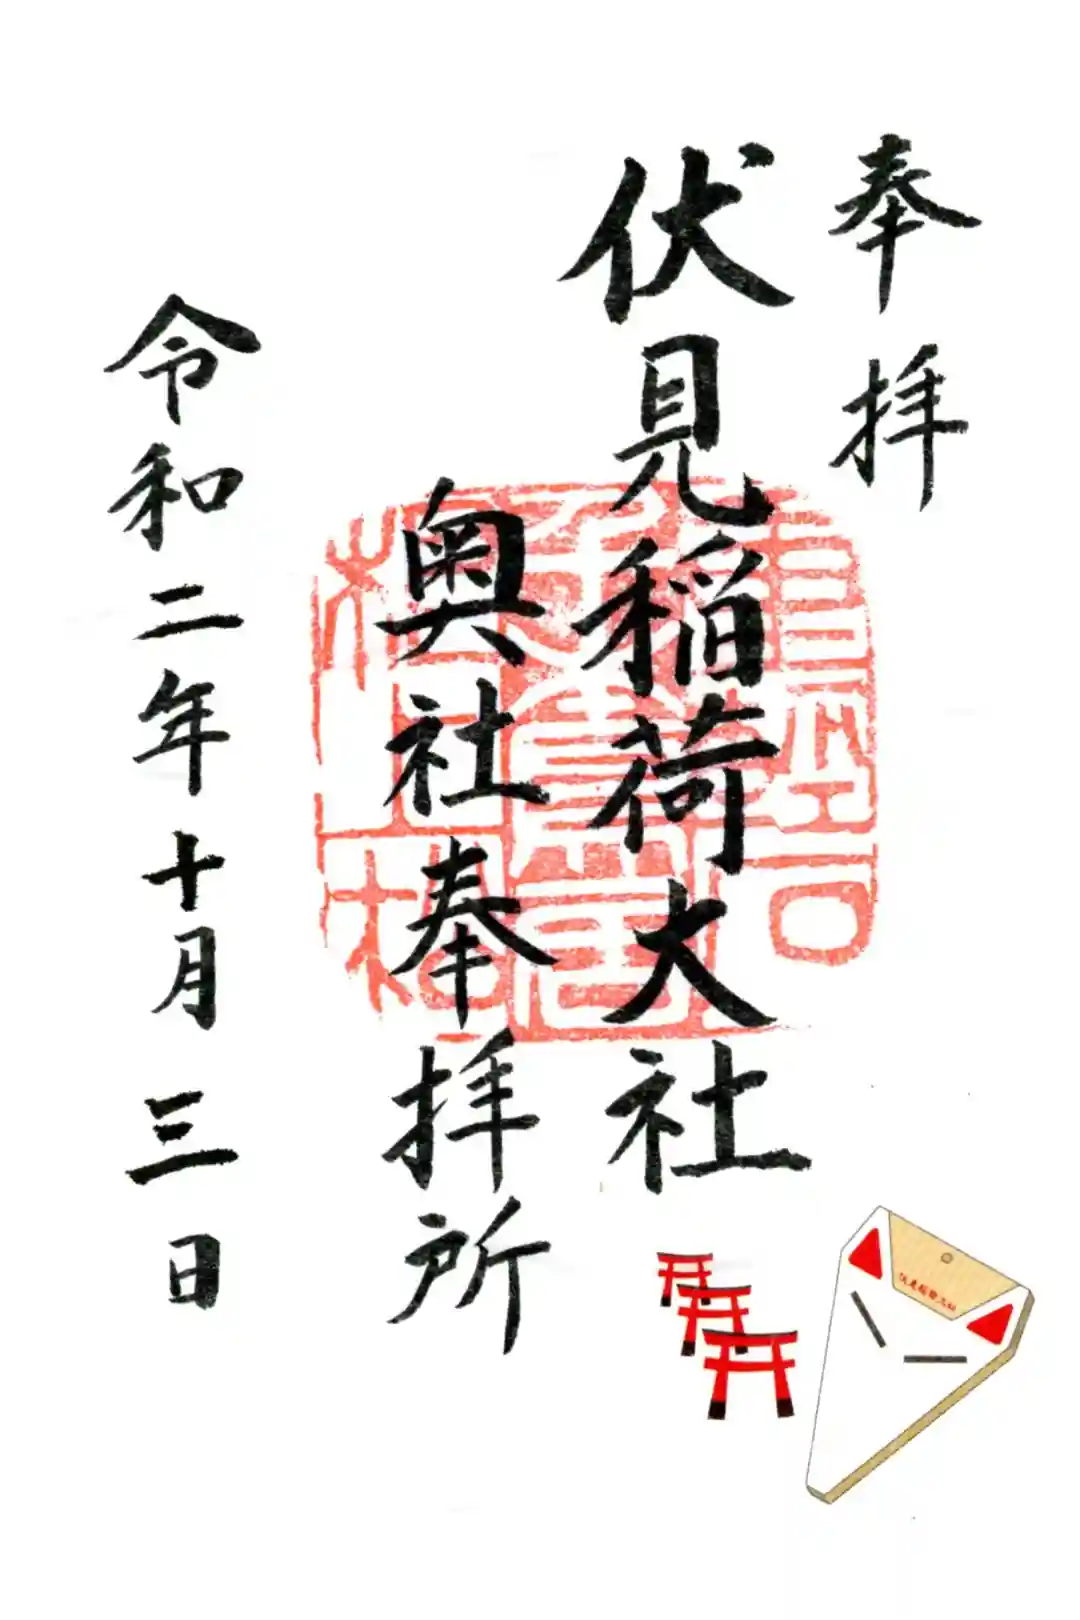 奉拝
伏見稲荷大社
奥社奉拝所
令和二年十月三日
伏見稲荷大社